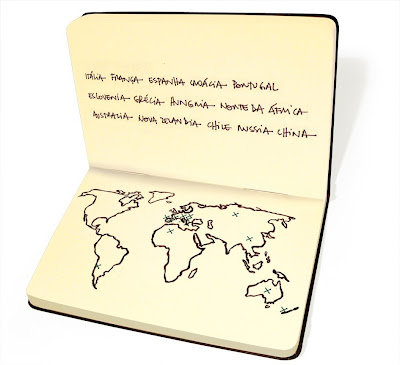 ITÁLIA FRANÇA ESPANHA CROÁCIA PORTUGAL
ESLOVENIA GRÉCIA HUNGRIA NORTE DA ÁFRICA
AUSTRALIA NOVA ZELANDIA CHILE RUSSIA CHINA